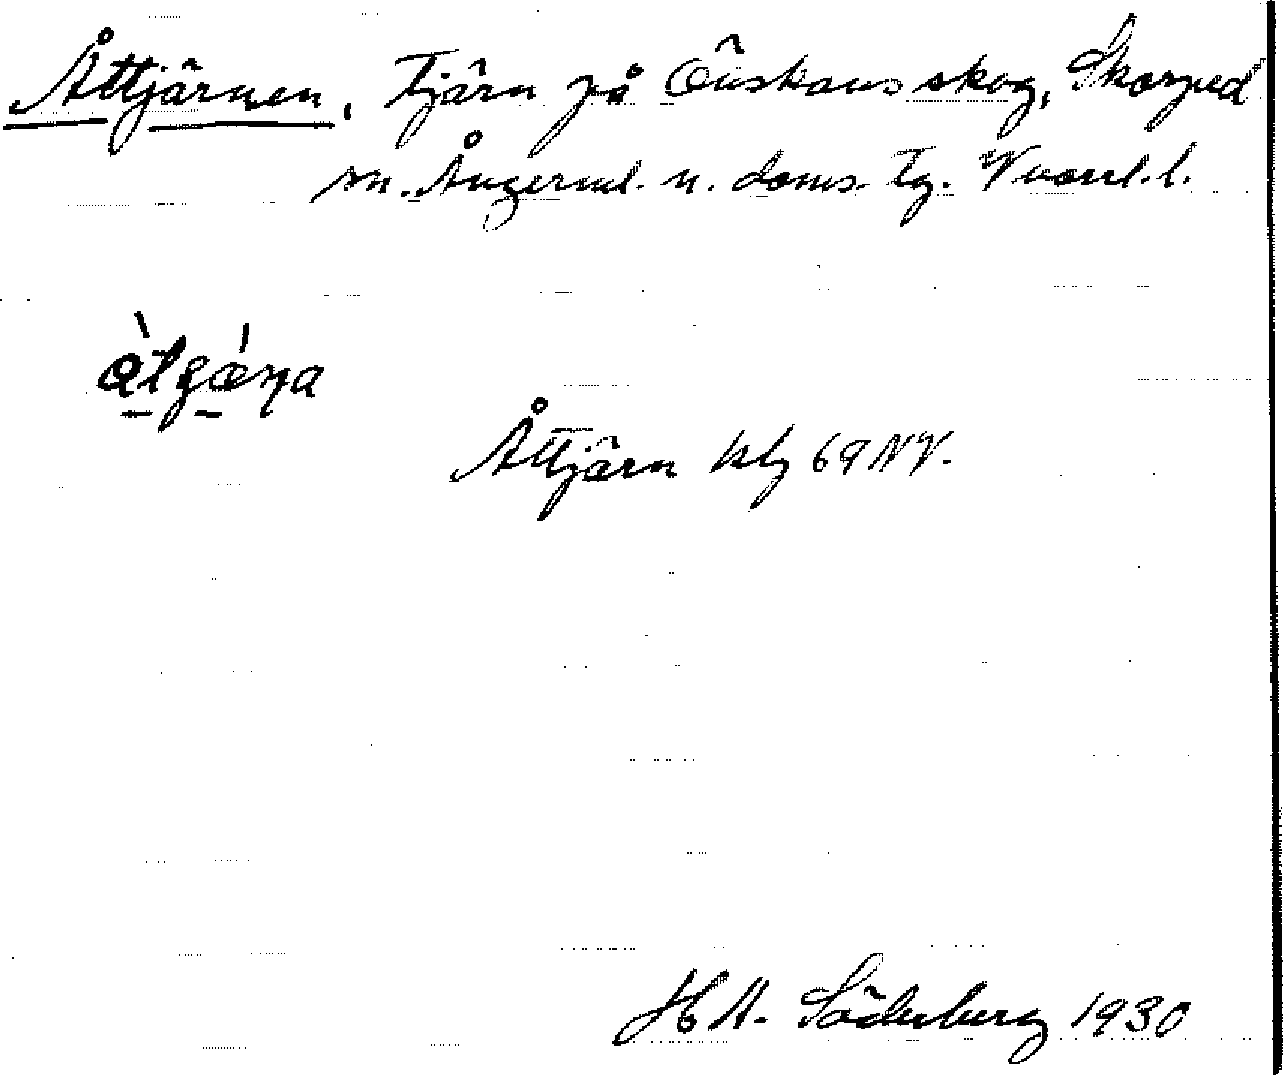 Åttjärnen, tjärn på Önskans skog, Skorped
sn. Ångerml. n. doms. tg. Västnl. l.
Åttjärn kbl 69 NV.
H A. Söderberg 1930